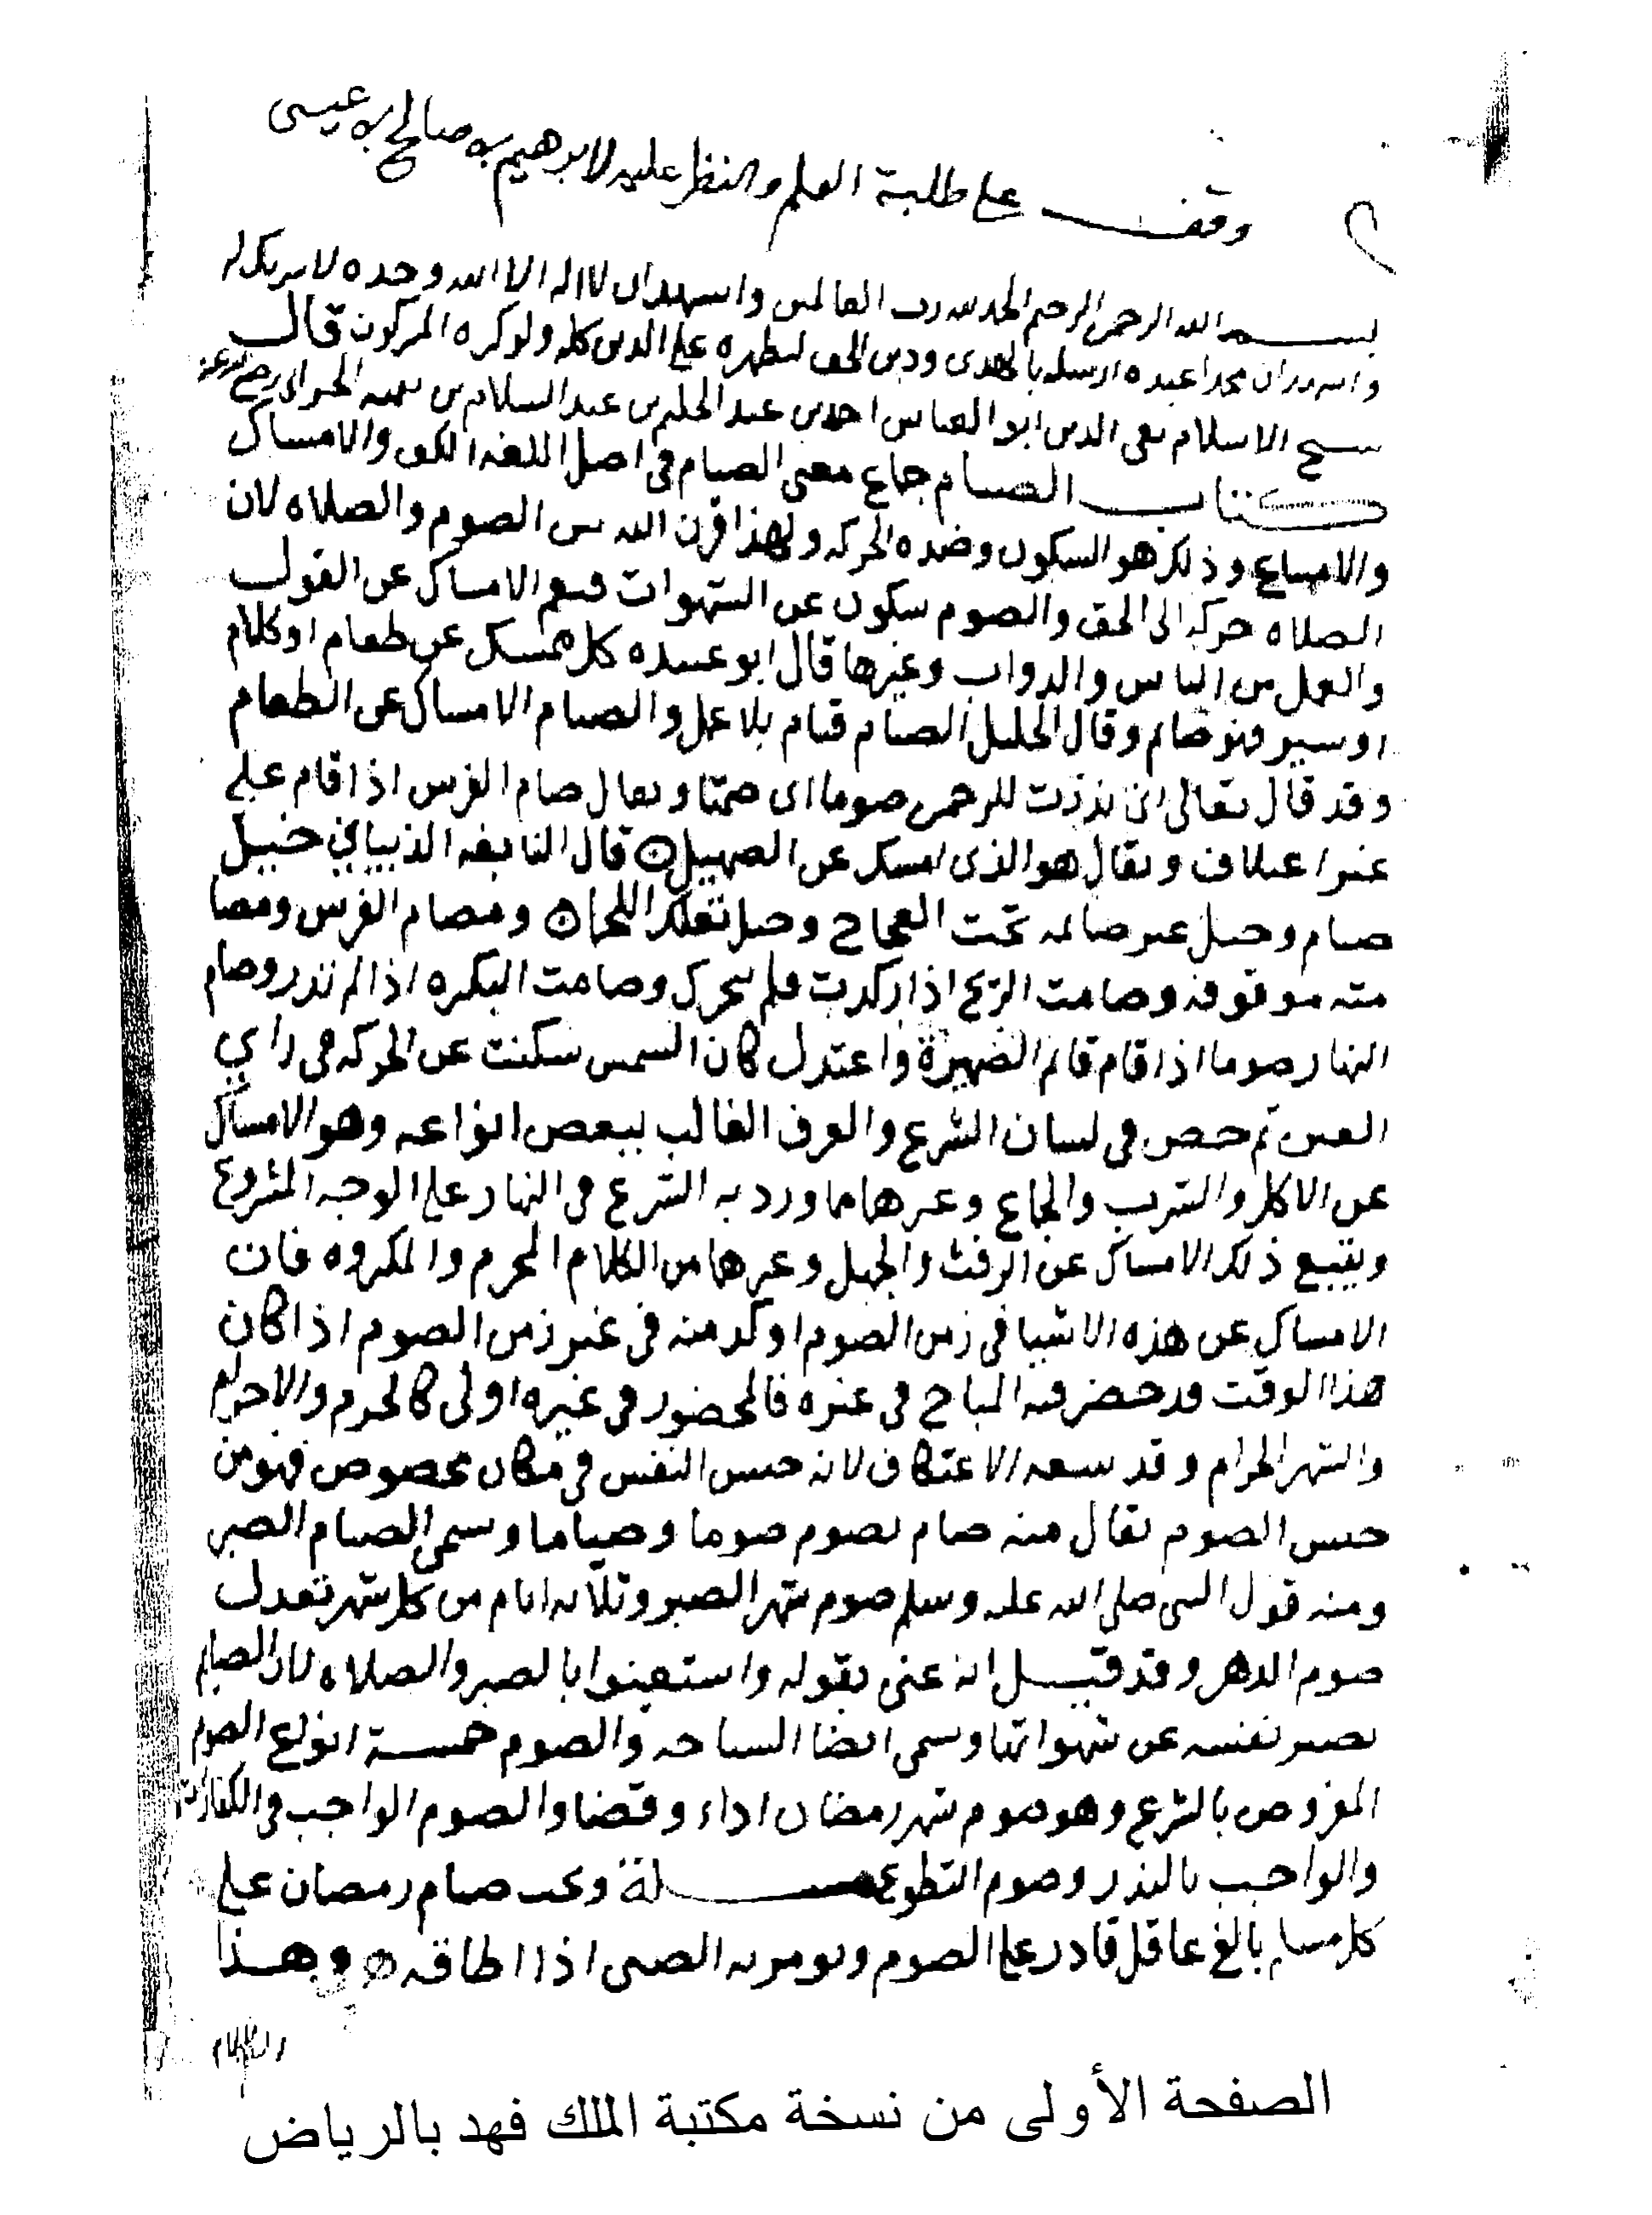 وقف على طلبة العلم والنظر عليه لابرهيم بن صالح بن عيسى
بسم الله الرحمن الرحيم الحمد لله رب العالمين واشهد ان لا اله الا الله وحده لا شريك له
واشهد ان محمدا عبده ارسله بالهدى ودين الحق ليظهره على الدين كله ولو كره المشركون قال
شيخ الاسلام تقى الدين ابو العباس احمد بن عبد الحليم بن عبد السلام بن تيميه الحرانى رضي الله عنه
كتاب الصيام جماع معنى الصيام في اصل اللغه الكف والامساك
والامتناع وذلك هو السكون وضده الحركه ولهذا قرن الله بين الصوم والصلاه لان
الصلاه حركه الى الحق والصوم سكون عن الشهوات فيعم الامساك عن القول
والعمل من الناس والدواب وغيرها قال ابو عبيده كل ممسك عن طعام او كلام
او سير فهو صائم وقال الخليل الصيام قيام بلا عمل والصيام الامساك عن الطعام
وقد قال تعالى اني نذرت للرحمن صوما اى صمتا ويقال صام الفرس اذا قام على
غير اعتلاف ويقال هو الذى امسك عن الصهيل قال النابغه الذبياني خيل
صيام وخيل غير صائمه تحت العجاج وخيل تعلك اللجما ومصام الفرس ومصا
مته موقوفه وصامت الريح اذا ركدت فلم تتحرك وصامت البكره اذا لم تدر وصام
النهار صوما اذا قام قائم الضهيرة واعتدل كان الشمس سكنت عن الحركه في راي
العين ثم خص في لسان الشرع والعرف الغالب ببعض انواعه وهو الامساك
عن الاكل والشرب والجماع وغيرها مما ورد به الشرع في النهار على الوجه المشروع
ويتبع ذلك الامساك عن الرفث والجهل وغيرها من الكلام المحرم والمكروه فان
الامساك عن هذه الاشيا في زمن الصوم اوكد منه في غير زمن الصوم اذا كان
هذا الوقت قد حضر فيه المباح في غيره فالمحضور في غيره اولى كالحرم والاحرام
والشهر الحرام وقد يتبعه الاعتكاف لانه حبس النفس في مكان مخصوص فهو من
جنس الصوم يقال منه صام يصوم صوما وصياما وسمى الصيام الصبر
ومنه قول النبى صلى الله عليه وسلم صوم شهر الصبر وثلاثه ايام من كل شهر تعدل
صوم الدهر وقد قيل انه عنى بقوله واستعينوا بالصبر والصلاه لان الصايم
يصبر نفسه عن شهواتها وسمى ايضا السياحه والصوم خمسة انواع الصوم
المفروض بالشرع وهو صوم شهر رمضان اداء وقضا والصوم الواجب في الكفارات
والواجب بالنذر وصوم التطوع مسلة ويجب صيام رمضان على
كل مسلم بالغ عاقل قادر على الصوم ويومر به الصبى اذا اطاقه وهذا
الكلام
الصفحة الأولى من نسخة مكتبة الملك فهد بالرياض